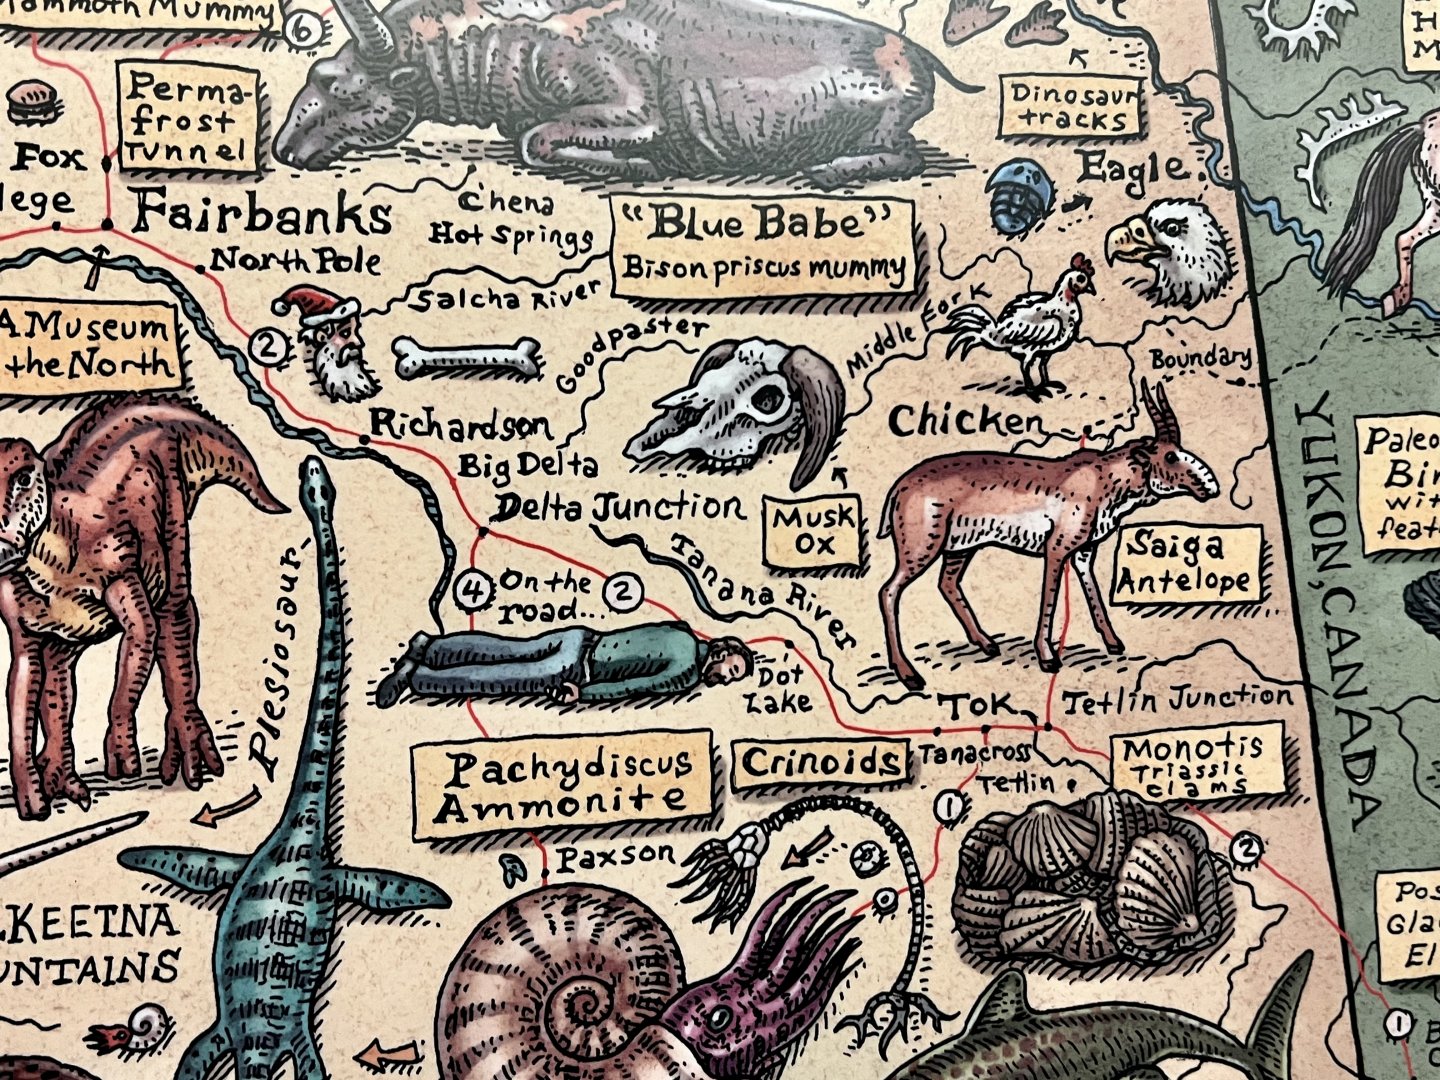 Mammoth Mummy
6
Perma-
frost
Tunnel
Fox
Fairbanks
North Pole
Chena
Hot Springs
"Blue Babe"
Bison priscus mummy
Dinosaur
tracks
Eagle
A Museum
the North
2
Salcha River
Goodpaster
Middle Fork
Boundary
Chicken
Richardson
Big Delta
Delta Junction
Musk
Ox
Saiga
Antelope
YUKON, CANADA
Plesiosaur
4
On the
road...
2
Tanana River
Dot
Lake
Tok
Tetlin Junction
Tanacross
Tetlin
Pachydiscus
Ammonite
Crinoids
Monotis
Triassic
clams
1
2
Paxson
KEETNA
1